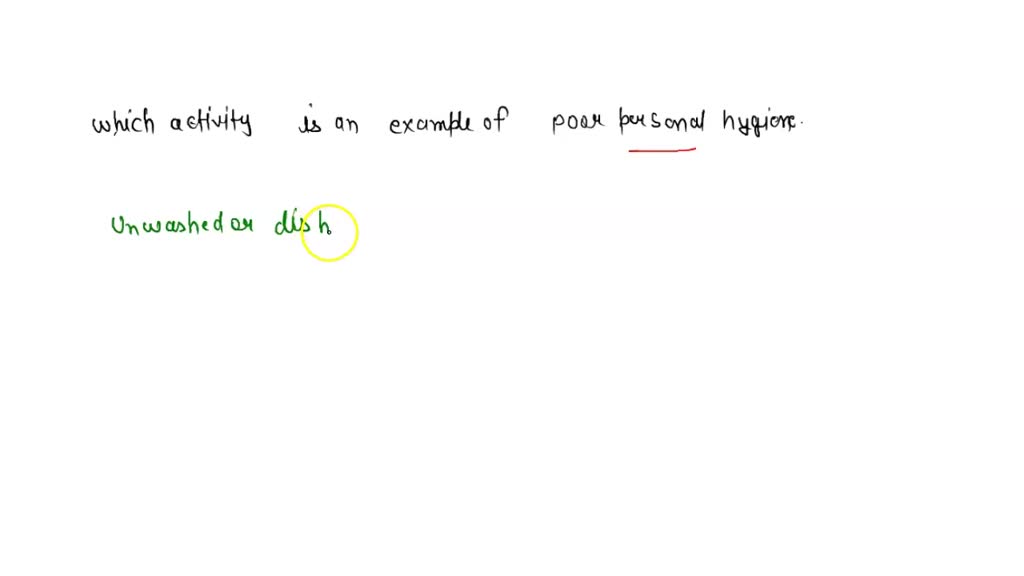 which activity is an example of poor personal hygiene.
Unwashed or dish